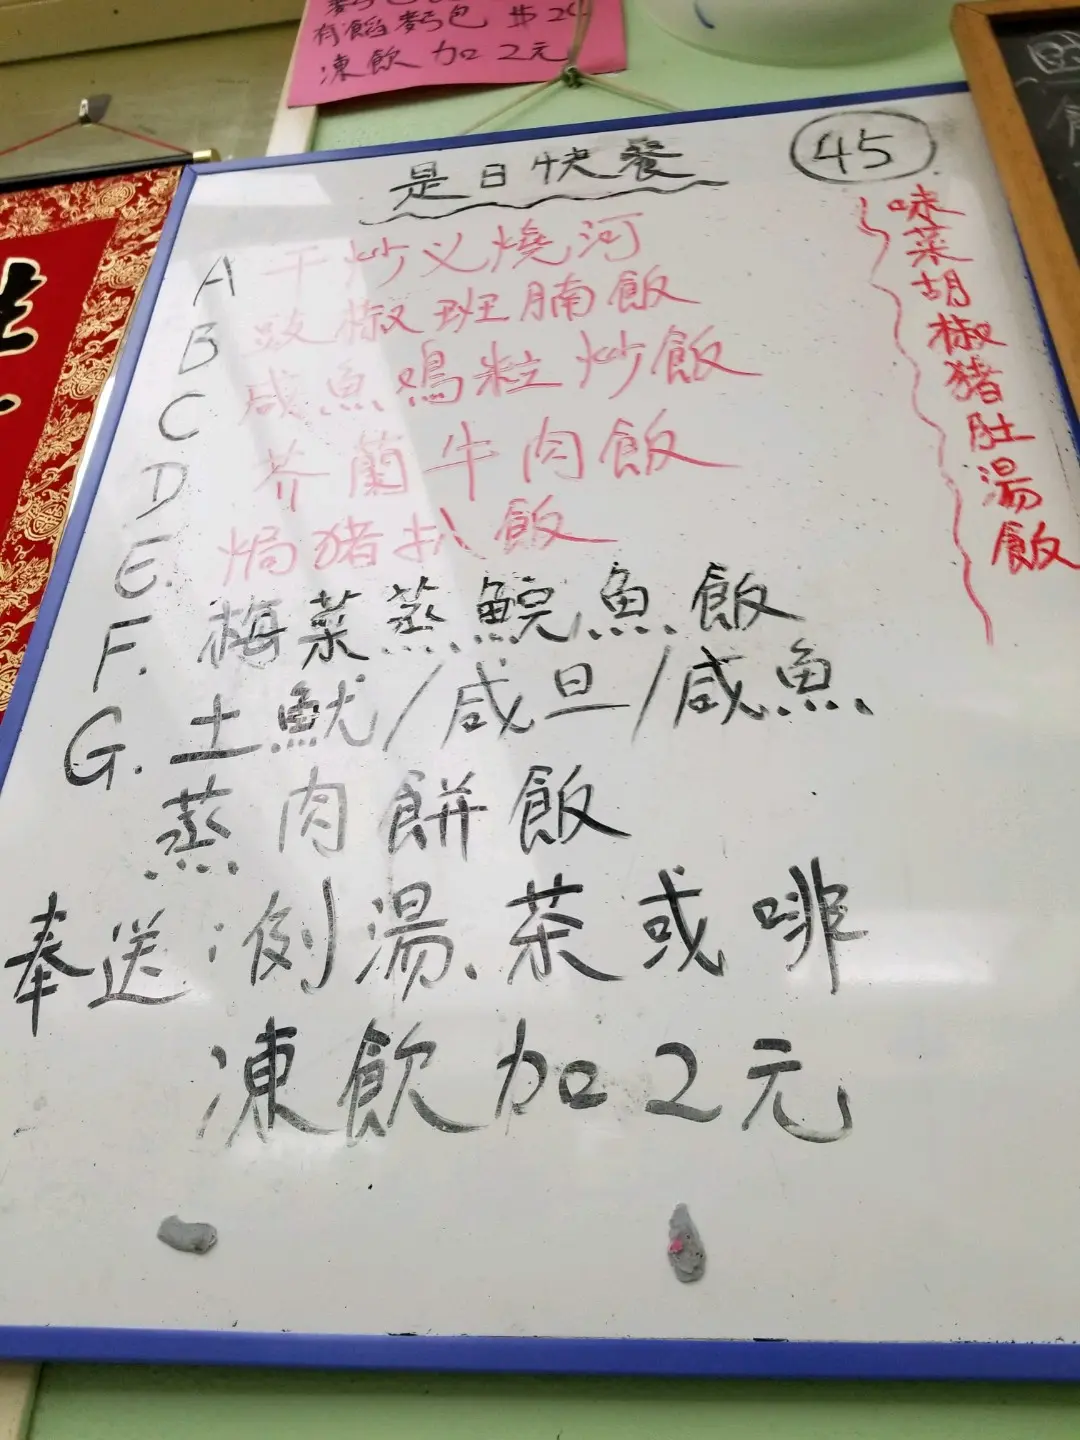 有餡麥丐包 $2
凍飲加2元
是日快餐
45
A 干炒义燒河
B 豉椒班腩飯
C 咸魚鳮粒炒飯
D 芥蘭牛肉飯
E. 焗猪扒飯
F. 梅菜蒸鯇魚飯
G. 土魷/咸旦/咸魚
蒸肉餅飯
奉送:例湯、茶或啡
凍飲加2元
味菜胡椒猪肚湯飯